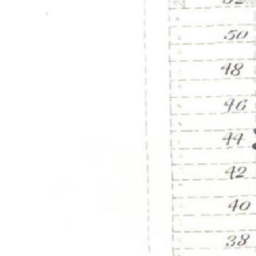 50
48
46
44
42
40
38